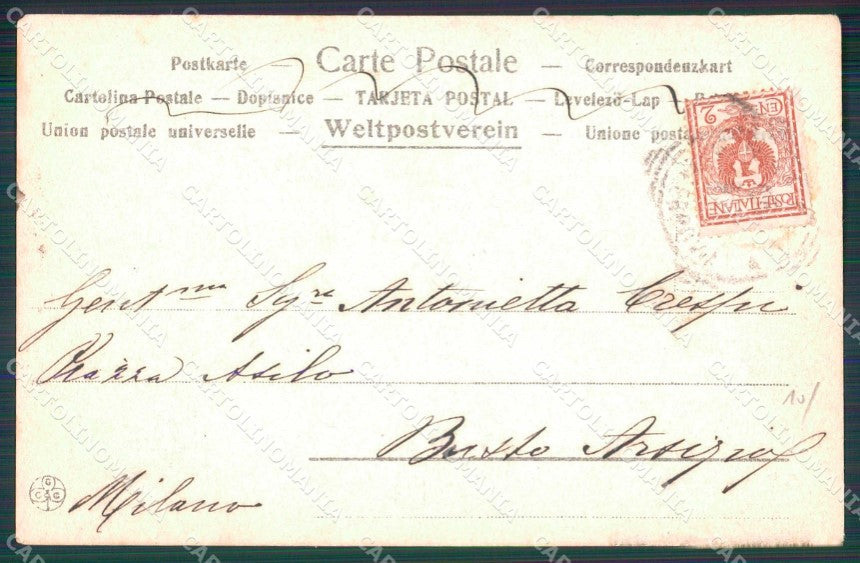 Postkarte Carte Postale — Correspondenzkart
Cartolina Postale — Dopisnice — TARJETA POSTAL — Levelező-Lap —
Union postale universelle — Weltpostverein — Unione posta
CEN 2
POSTE ITALIANE
Gentma Sigra Antonietta Crespi
Piazza Asilo
10/
Busto Arsizio
Milano
GGGG
CARTOLINOMANIA